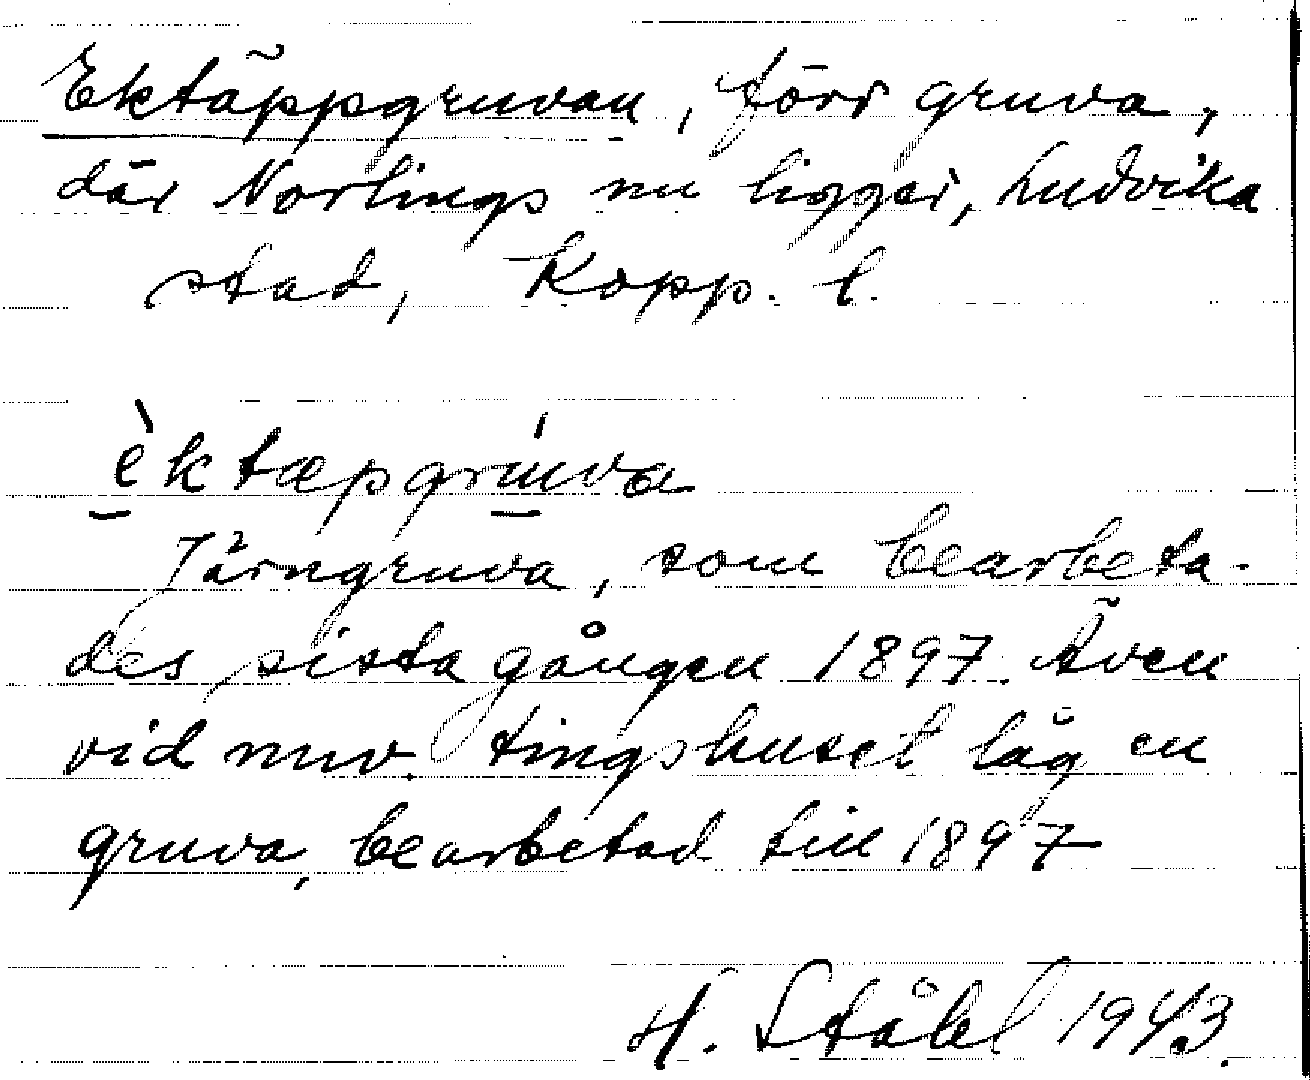 Ektäppgruvan, förr gruva,
där Norlings nu ligger, Ludvika
stad, Kopp. l.
èktæpgrúva
Järngruva, som bearbeta-
des sista gången 1897. Även
vid nuv. tingshuset låg en
gruva, bearbetad till 1897
H. Ståhl 1943.